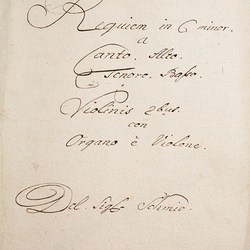 Requiem in C minor.
a
Canto. Alto.
Tenore. Basso.
Violinis 2bus.
con
Organo è Violone.
Del. Sigl. Schmid.